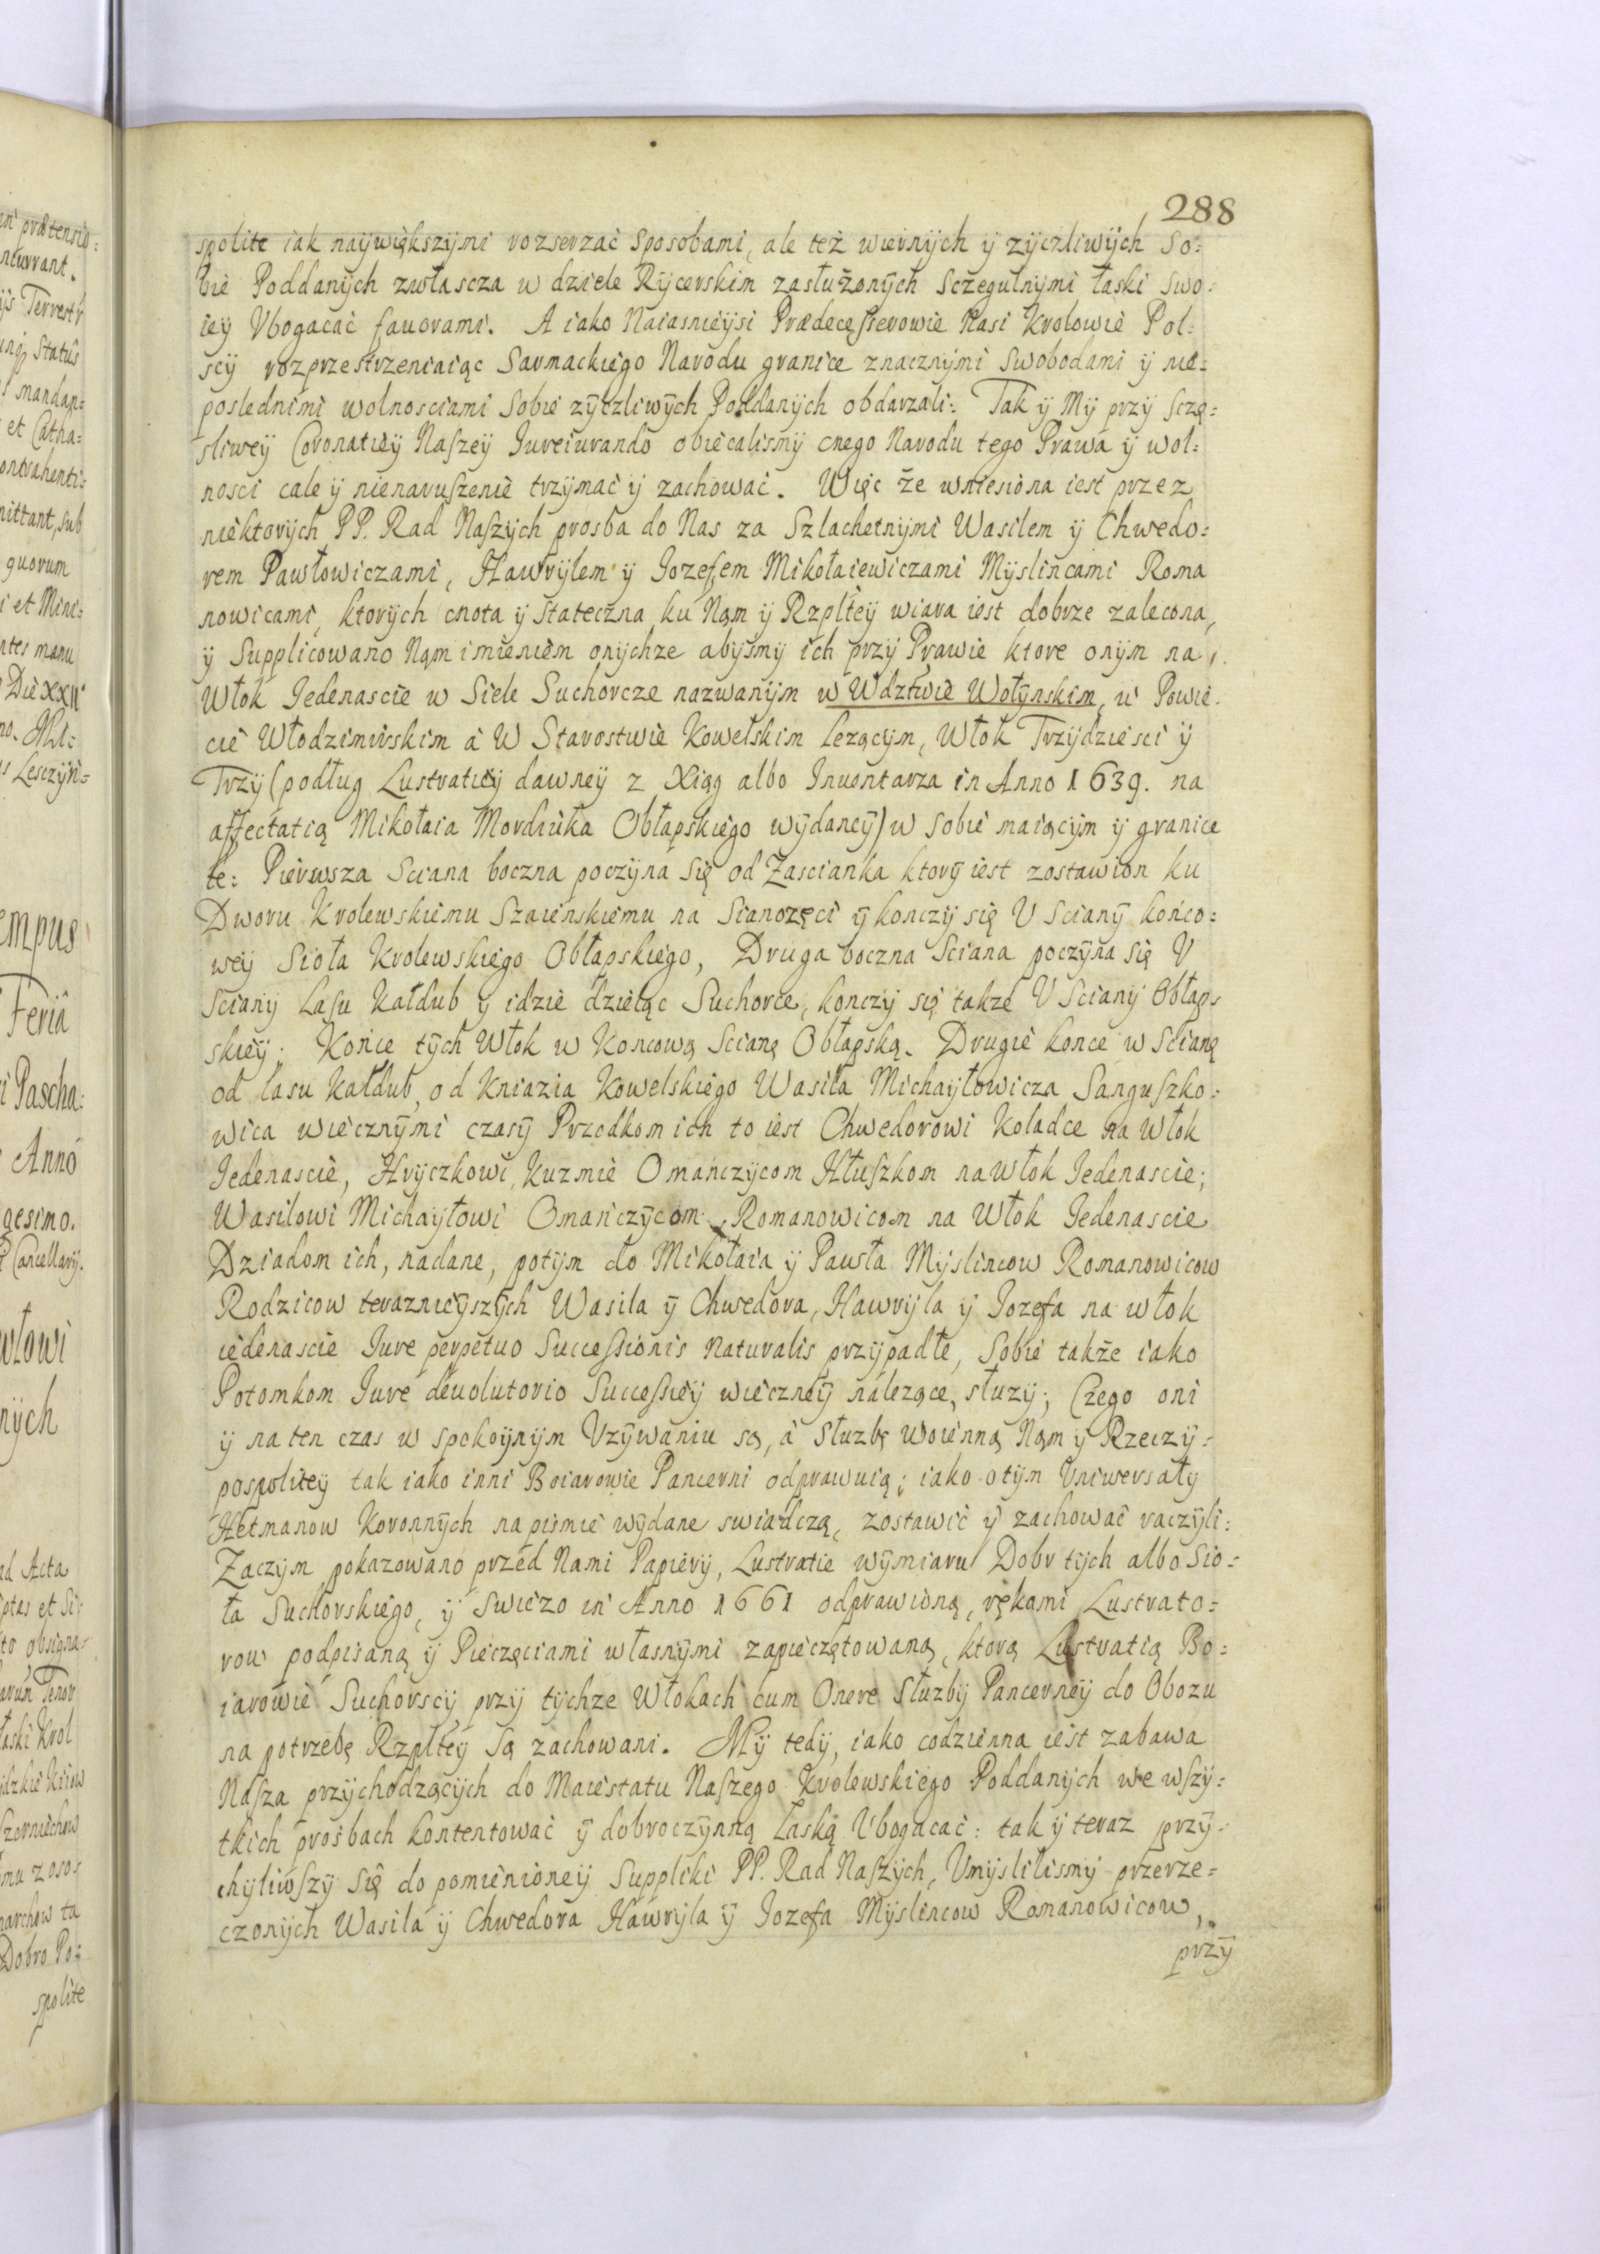 288
spolite iak naywiększymi rozserzać sposobami, ale też wiernych y zyczliwych so=
bie Poddanych zwłascza w dziele Rycerskim zasłużonych sczegulnymi łaski swo=
iey Vbogacać fauorami. A iako Naiasnieysi Prædecesserowie Nasi Krolowie Pol=
scy rozprzestrzeniaiąc Sarmackiego Narodu granice znacznymi swobodami y nie=
poslednimi wolnosciami Sobie zyczliwych Poddanych obdarzali: Tak y My przy sczę=
sliwey Coronatiey Naszey Iureiurando obiecalismy cnego Narodu tego Prawa y wol=
nosci cale y nienaruszenie trzymać y zachować. Więc że wniesiona iest przez
niektorych PP. Rad Naszych prosba do Nas za Szlachetnymi Wasilem y Chwedo=
rem Pawłowiczami, Hawryłem y Iozefem Mikołaiewiczami Myslińcami Roma
nowicami, ktorych cnota y stateczna ku Nąm y Rzpltey wiara iest dobrze zalecona,
y Supplicowano Nąm imieniem onychze abysmy ich przy Prawie ktore onym na
Włok Iedenascie w Siele Suchorcze nazwanym w Wdztwie Wołynskim, w Powie=
cie Włodzimirskim á W Starostwie Kowelskim lezącym, Włok Trzydziesci y
Trzy (podług Lustratiey dawney z Xiąg albo Inuentarza in Anno 1639. na
affectatią Mikołaia Mordziuka Obłąpskiego wydaney) w sobie maiącym y granice
te: Pierwsza Sciana boczna poczyna się od Zascianka ktory iest zostawion ku
Dworu Krolewskiemu Szaieńskiemu na Sianozęci y konczy się V Sciany końco=
wey Sioła Krolewskiego Obłapskiego, Druga boczna Sciana poczyna się V
Sciany Lasu Kałdub y idzie dzieląc Suchorce, konczy się takze V Sciany Obłąp=
skiey; Końce tych Włok w Koncową Scianę Obłapską. Drugie konce w Scianę
od lasu Kałdub, od Kniazia Kowelskiego Wasila Michayłowicza Sanguszko=
wica wiecznymi czasy Przodkom ich to iest Chwedorowi Koladce na Włok
Iedenascie, Hryczkowi, Kuzmie Omańczycom Hłuszkom na Włok Iedenascie;
Wasilowi Michayłowi Omańczycom Romanowicom na Włok Iedenascie
Dziadom ich, nadane, potym do Mikołaia y Pawła Myslincow Romanowicow
Rodzicow teraznieyszych Wasila y Chwedora, Hawryła y Iozefa na włok
iedenascie Iure perpetuo Successionis Naturalis przypadłe, Sobie także iako
Potomkom Iure deuolutorio Successiey wieczney nalezące, słuzy; Czego oni
y na ten czas w spokoynym Vzywaniu są, á słuzbę woienną Nąm y Rzeczy=
pospolitey tak iako inni Boiarowie Pancerni odprawuią; iako o tym Vniwersały
Hetmanow Koronnych na pismie wydane swiadczą, zostawić y zachować raczyli:
Zaczym pokazowano przed Nami Papiery, Lustratie wymiaru Dobr tych albo Sio=
ła Suchorskiego, y swiezo in Anno 1661 odprawioną, rękami Lustrato=
row podpisaną y Pieczęciami własnymi zapieczętowaną, ktorą Lustratią Bo=
iarowie Suchorscy przy tychze Włokach cum Onere Słuzby Pancerney do Obozu
na potrzebę Rzpltey są zachowani. My tedy, iako codzienna iest zabawa
Nasza przychodzących do Maiestatu Naszego Krolewskiego Poddanych we wszy=
tkich prosbach kontentować y dobroczynną Łaską Vbogacać: tak y teraz przy=
chyliwszy się do pomienioney Suppliki PP. Rad Naszych, Vmyslilismy przerze=
czonych Wasila y Chwedora Hawryla y Iozefa Myslincow Romanowicow,
przy